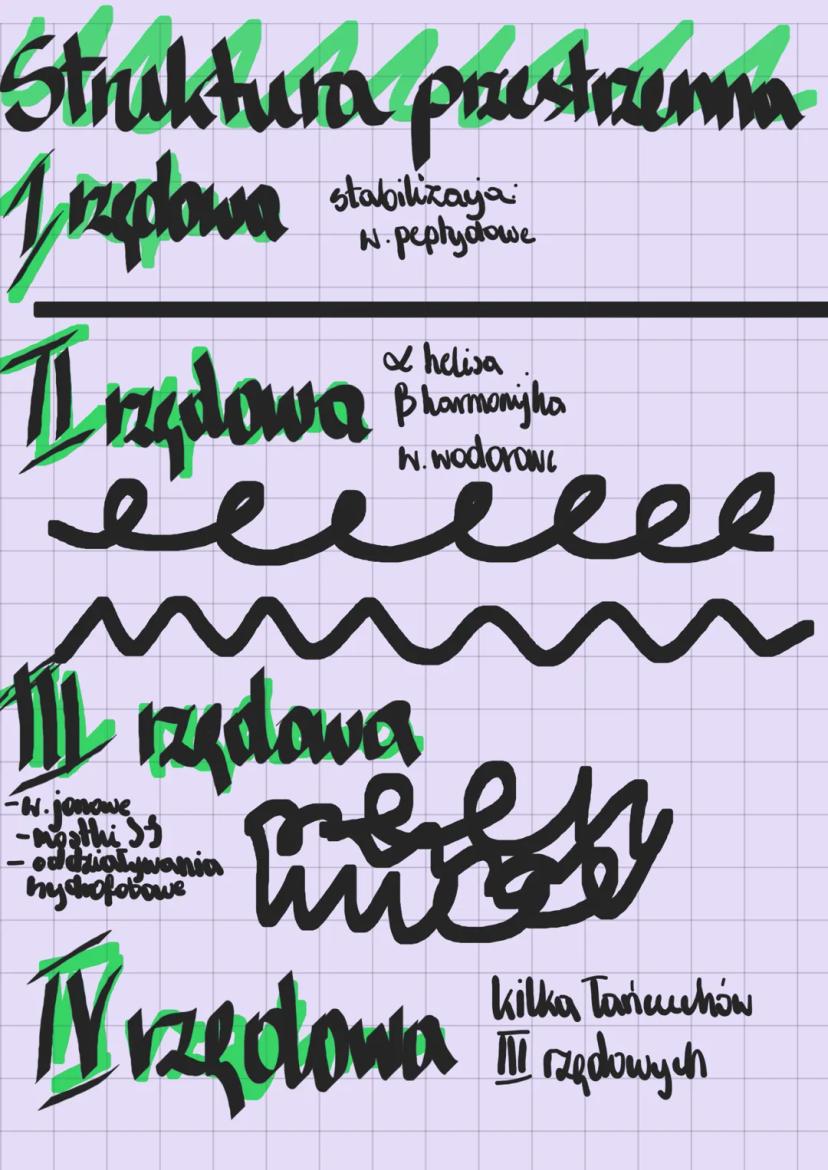 Struktura przestrzenna
I rzędowa
stabilizacja:
w. peptydowe
II rzędowa
α helisa
β harmonijka
w. wodorowe
III rzędowa
- w. jonowe
- mostki SS
- oddziaływania
hydrofobowe
IV rzędowa
kilka łańcuchów
III rzędowych